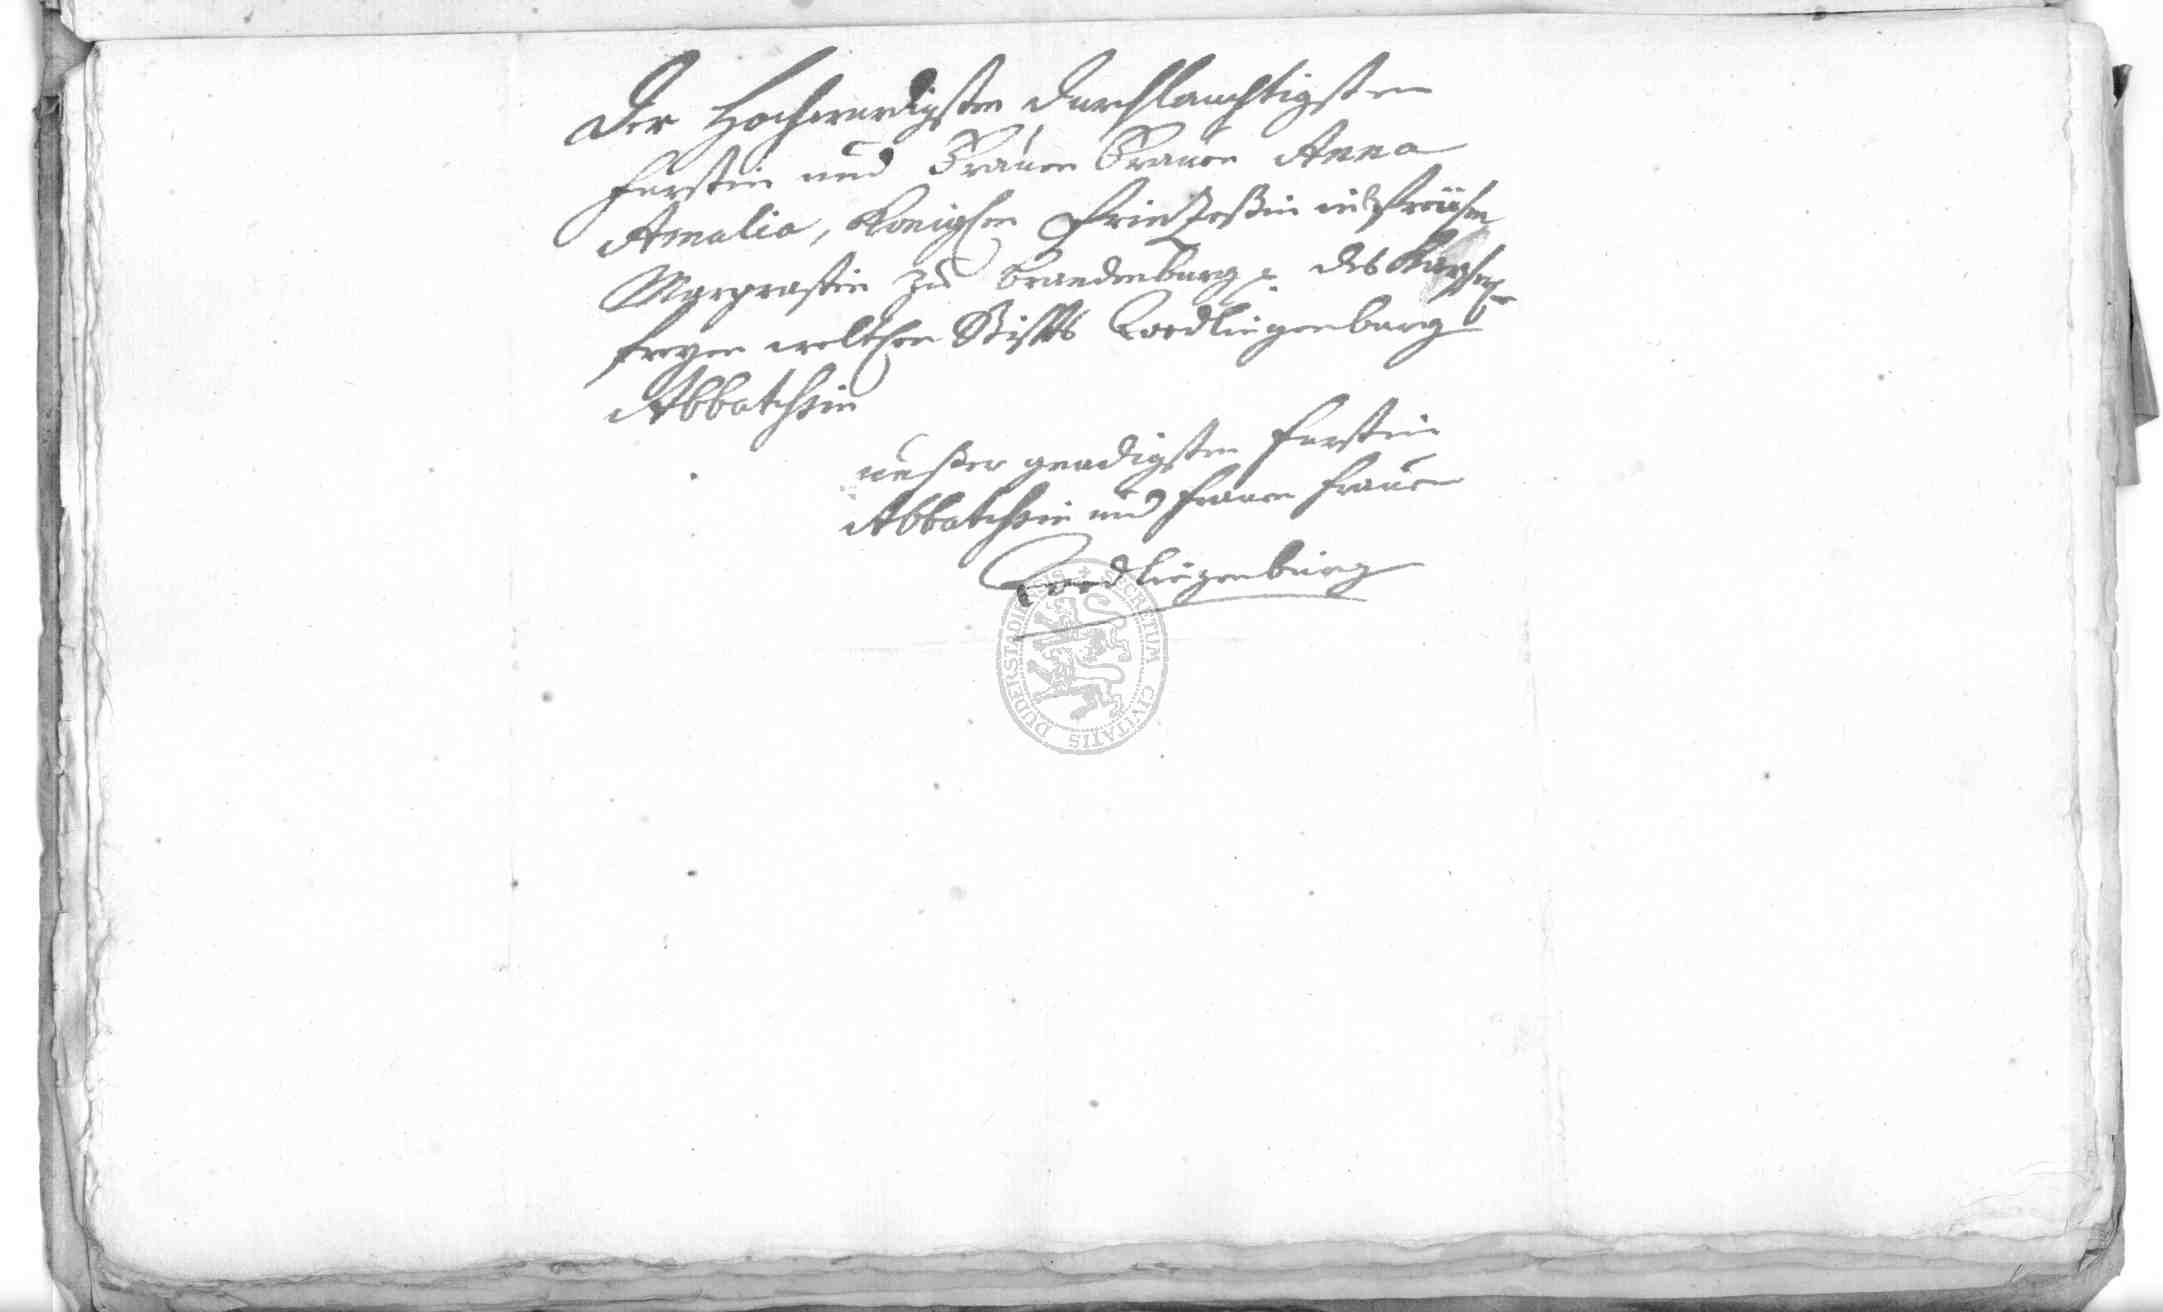 Der Hochwurdigsten Durchlauchtigsten
furstin und Frauen Frauen Anna
Amalia, Konigln Printzeßin in Preüsen
Margraffin zu Brandenburg p. des Kayserl
freyen weltlichen Stiffts Qvedlingenburg
Abbatißin
unßer gnadigsten furstin
Abbatißin und frauen frauen
Qvedlingenburg
SECRETUM CIVITATIS DUDERSTADIENSIS